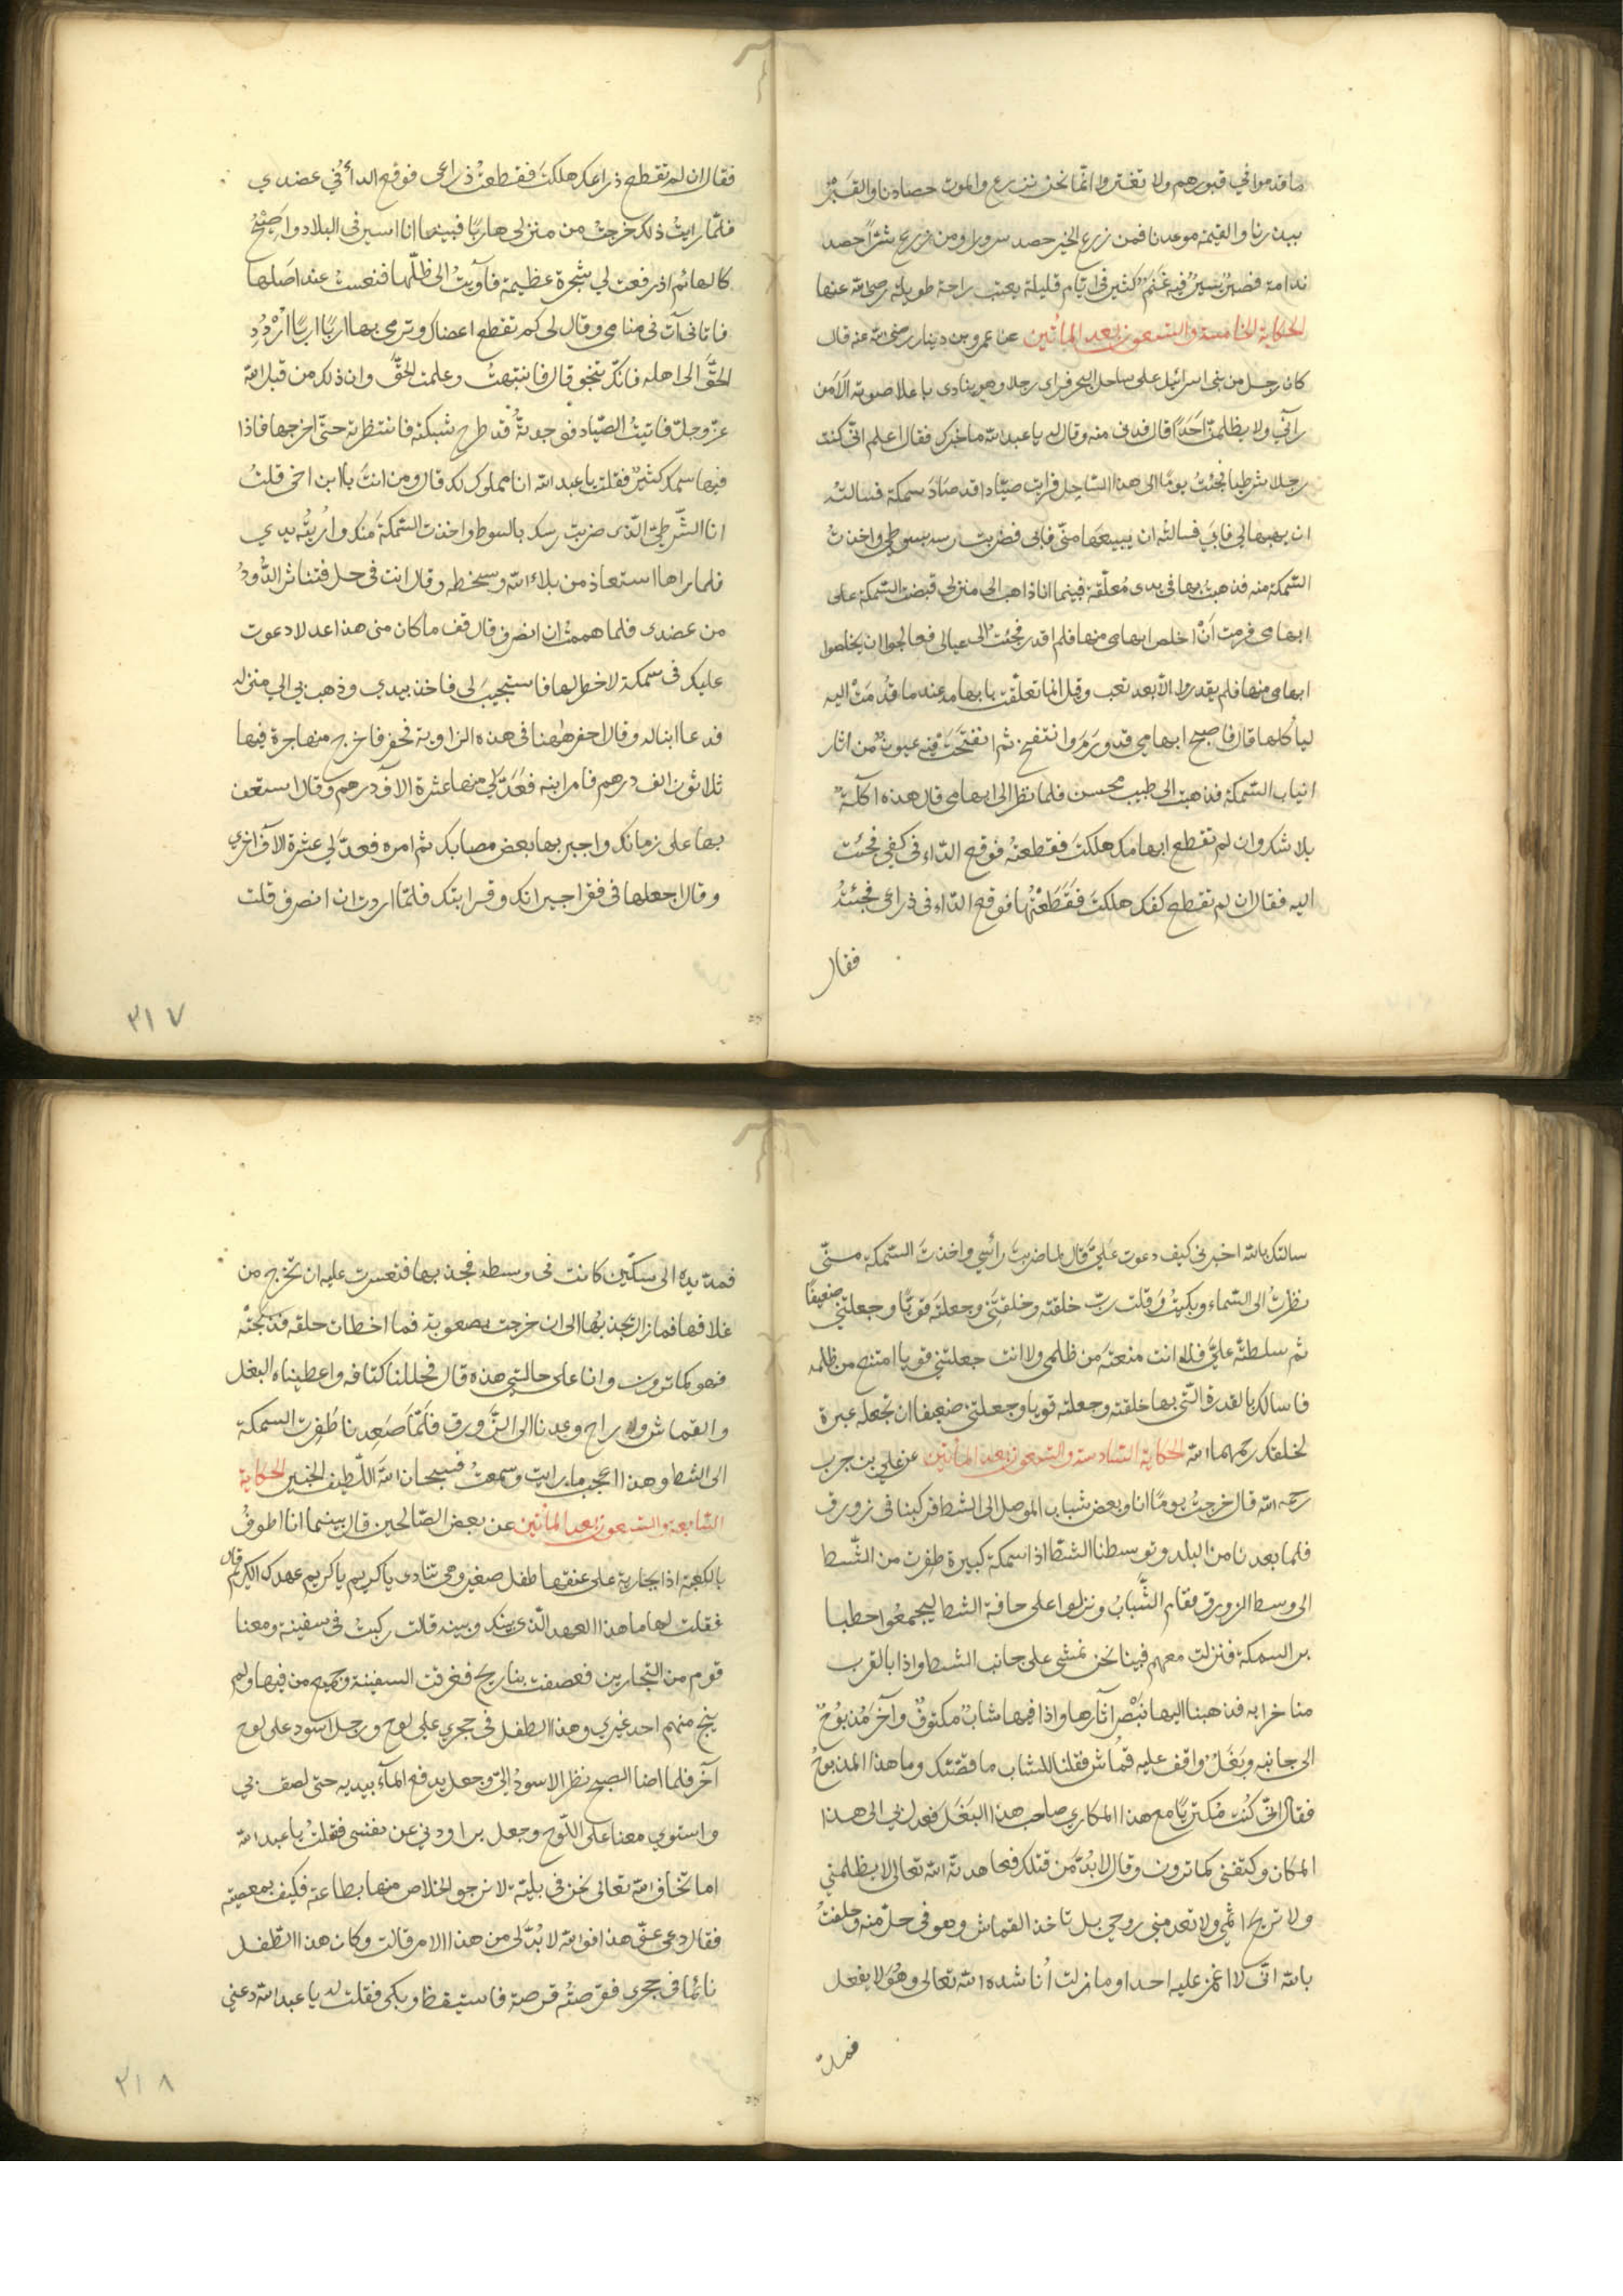 ما قدموا في قبورهم ولا تغتروا انما نحن نزرع والموت حصادنا والقبر
بيدرنا والقيمة موعدنا فمن زرع الخير حصد سرورا ومن زرع شرّاً حصد
ندامة فصبرٌ يسيرٌ فيه غنمٌ كثير في ايّام قليلة يعقب راحة طويلة رضي الله عنها
الحكاية الخامسة والتسعون بعد المأتين عن عمرو بن دينار رضي الله عنه قال
كان رجل من بني اسرائيل على ساحل البحر فراى رجلا وهو ينادى باعلا صوته الا من
رآني ولا يظلمن احداً قال فدنى منه وقال له يا عبد الله ما خبرك فقال اعلم انّي كنت
رجلا شرطيا فجئت يومًا الى هذا الساحل فرايت صيّادا قد صاد سمكة فسالته
ان يهبها لي فابي فسالته ان يبيعها منّي فابى فضربت رسه بسوطي واخذت
السّمكة منه فذهبت بها في يدى معلّقة فبينما انا ذاهب الى منزلي قبضت السّمكة على
ابهامى فرمت أن اخلص ابهامى منها فلم اقدر فجئت الى عيالى فعالجوا ان يخلصوا
ابهامى منها فلم يقدروا الّا بعد تعب وقل انما تعلّقت بابهامه عند ما قدمت اليه
لياكلها قال فاصبح ابهامي قد ورم وانتفخ ثم انفتحت فيه عيون من اثار
انياب السّمكة فذهبت الى طبيب محسن فلما نظر الى ابهامى قال هذه اكلة
بلا شك وان لم تقطع ابهامك هلكت فقطعته فوقع الدّاء في كفي فجئت
اليه فقال ان لم تقطع كفك هلكت فقطعتها فوقع الداء في ذراعى فجئته
فقال
فقال ان لم تقطع ذراعك هلكت فقطعت ذراعى فوقع الداء في عضدي
فلمّا رايت ذلك خرجت من منزلى هاربًا فبينما انا اسير في البلاد واصيح
كالهائم اذ رفعت لي شجرة عظيمة فآويت الى ظلّها فنعست عند اصلها
فاتانى آت في منامى وقال لى كم تقطع اعضاك وترمى بها اربًا اربًا اردد
الحقّ الى اهله فانك تنجو قال فانتبهت وعلمت الحقّ وان ذلك من قبل الله
عزّ وجلّ فاتيت الصيّاد فوجدته قد طرح شبكته فانتظرته حتى اخرجها فاذا
فيها سمك كثير فقلت يا عبد الله انا مملوك لك قال ومن انت يا ابن اخى قلت
انا الشّرطيّ الّذى ضربت رسك بالسوط واخذت السّمكة منك واريته يدي
فلما راها استعاذ من بلاء الله وسخطه وقال انت في حل فتناثر الدّود
من عضدى فلما هممت ان انصرف قال قف ما كان منى هذا عدلا دعوت
عليك فى سمكة لا خطر لها فاستجيب لى فاخذ بيدي وذهب بي الي منزله
فدعا ابنا له وقال احفر ههنا في هذه الزاوية فحفر فاخرج منها جرة فيها
ثلاثون الف درهم فامر ابنه فعدّ لي منها عشرة الاف درهم وقال استعن
بها على زمانك واجبر بها بعض مصابك ثم امره فعدّ لي عشرة الاف اخرى
وقال اجعلها في فقرا جيرانك وقرابتك فلمّا اردت ان انصرف قلت
٣١٧
سالتك بالله اخبرني كيف دعوت عليّ قال لما ضربت رأسي واخذت السّمكة منّي
نظرت الى السّماء وبكيت وقلت ربّ خلقته وخلقتني وجعلته قويًا وجعلتني ضعيفًا
ثم سلطته عليّ فلا انت منعته من ظلمى ولا انت جعلتني قويا امتنع من ظلمه
فاسالك بالقدرة الّتي بها خلقته وجعلته قويا وجعلتنى ضعيفا ان تجعله عبرة
لخلقك رحمهما الله الحكاية السّادسة والتسعون بعد المأتين عن علي بن حرب
رحمه الله قال خرجت يومًا انا وبعض شباب الموصل الى الشط فركبنا في زورق
فلما بعدنا من البلد وتوسطنا الشط اذا سمكة كبيرة طفرت من الشّط
الى وسط الزورق فقام الشّباب ونزلوا على حافة الشط ليجمعوا حطبا
برسم السمكة فنزلت معهم فبينا نحن نمشى على جانب الشط واذا بالقرب
منا خرابه فذهبنا اليها نبصر آثارها واذا فيها شاب مكتوف وآخر مذبوح
الى جانبه وبغل واقف عليه قماش فقلنا للشاب ما قصّتك وما هذا المذبوح
فقال انّي كنت مكتريًا مع هذا المكاري صاحب هذا البغل فعدل بي الى هذا
المكان وكتفنى كما ترون وقال لا بدّ من قتلك فعاهدته الله تعالى لا يظلمني
ولا تربح اثمي ولا تعدمني روحي بل تاخذ القماش وهو في حلّ منه وحلفت
بالله انّي لا اغمز عليه احدا وما زلت اناشده الله تعالى وهو لا يفعل
فمد
فمدّ يده الى سكّين كانت في وسطه فجذبها فتعسرت عليه ان تخرج من
غلافها فما زال يجذبها الى ان خرجت بصعوبة فما اخطات حلقه فذبحته
فهو كما ترون وانا على حالتي هذه قال فحللنا كتافه واعطيناه البغل
والقماش وراح وعدنا الى الزّورق فلمّا صعدنا طفرت السمكة
الى الشط وهذا اعجب ما رايت وسمعت فسبحان الله اللّطيف الخبير الحكاية
السّابعة والتسعون بعد المأتين عن بعض الصّالحين قال بينما انا اطوف
بالكعبة اذا بجارية على عنقها طفل صغير وهي تنادى يا كريم يا كريم عهدك الكريم قال
فقلت لها ما هذا العهد الّذي بينك وبينه قالت ركبت في سفينة ومعنا
قوم من التجارين فعصفت بنا ريح فغرقت السفينة وجميع من فيها ولم
ينج منهم احد غيري وهذا الطفل في حجري على لوح ورجل اسود على لوح
آخر فلما اضا الصبح نظر الاسود اليّ وجعل يدفع المآء بيديه حتى لصق بي
واستوي معنا على اللّوح وجعل يراودني عن نفسي فقلت يا عبد الله
اما تخاف الله تعالى نحن في بليّة لا نرجو الخلاص منها بطاعته فكيف بمعصيته
فقال دعي عنّي هذا فوالله لا بدّ لي من هذا الامر قالت وكان هذا الطّفل
نائما في حجرى فقرصته قرصة فاستيقظ وبكى فقلت له يا عبد الله دعني
٣١٨